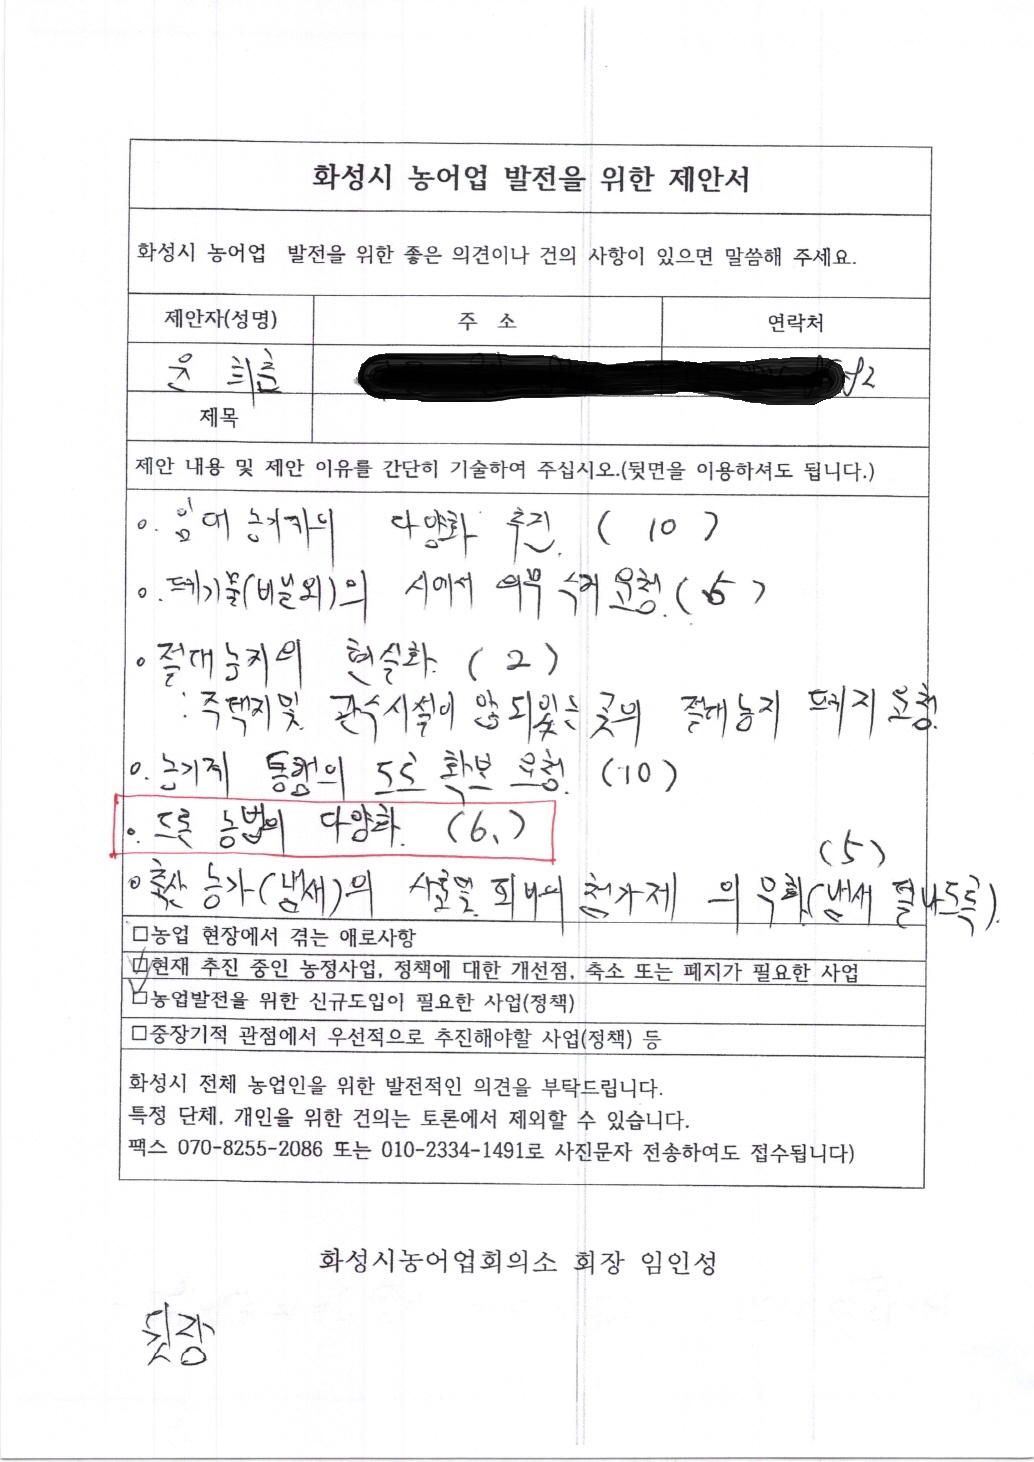 화성시 농어업 발전을 위한 제안서
화성시 농어업 발전을 위한 좋은 의견이나 건의 사항이 있으면 말씀해 주세요.
제안자(성명) 주 소 연락처
윤 희춘
제목
제안 내용 및 제안 이유를 간단히 기술하여 주십시오.(뒷면을 이용하셔도 됩니다.)
o. 임대 농기계의 다양화 추진. ( 10 )
o. 폐기물(비닐외)의 시에서 의무 수거 요청. ( 5 )
o 절대농지의 현실화. ( 2 )
: 주택지및 관수시설이 안되있는 곳의 절대농지 폐지 요청.
o. 농기계 통행의 도로 확보 요청. (10)
o. 드론 농법의 다양화. (6.)
(5)
o 축산 농가(냄새)의 사료및 퇴비에 첨가제 의무화(냄새 덜나도록).
□농업 현장에서 겪는 애로사항
□현재 추진 중인 농정사업, 정책에 대한 개선점, 축소 또는 폐지가 필요한 사업
□농업발전을 위한 신규도입이 필요한 사업(정책)
□중장기적 관점에서 우선적으로 추진해야할 사업(정책) 등
화성시 전체 농업인을 위한 발전적인 의견을 부탁드립니다.
특정 단체, 개인을 위한 건의는 토론에서 제외할 수 있습니다.
팩스 070-8255-2086 또는 010-2334-1491로 사진문자 전송하여도 접수됩니다)
화성시농어업회의소 회장 임인성
뒷장